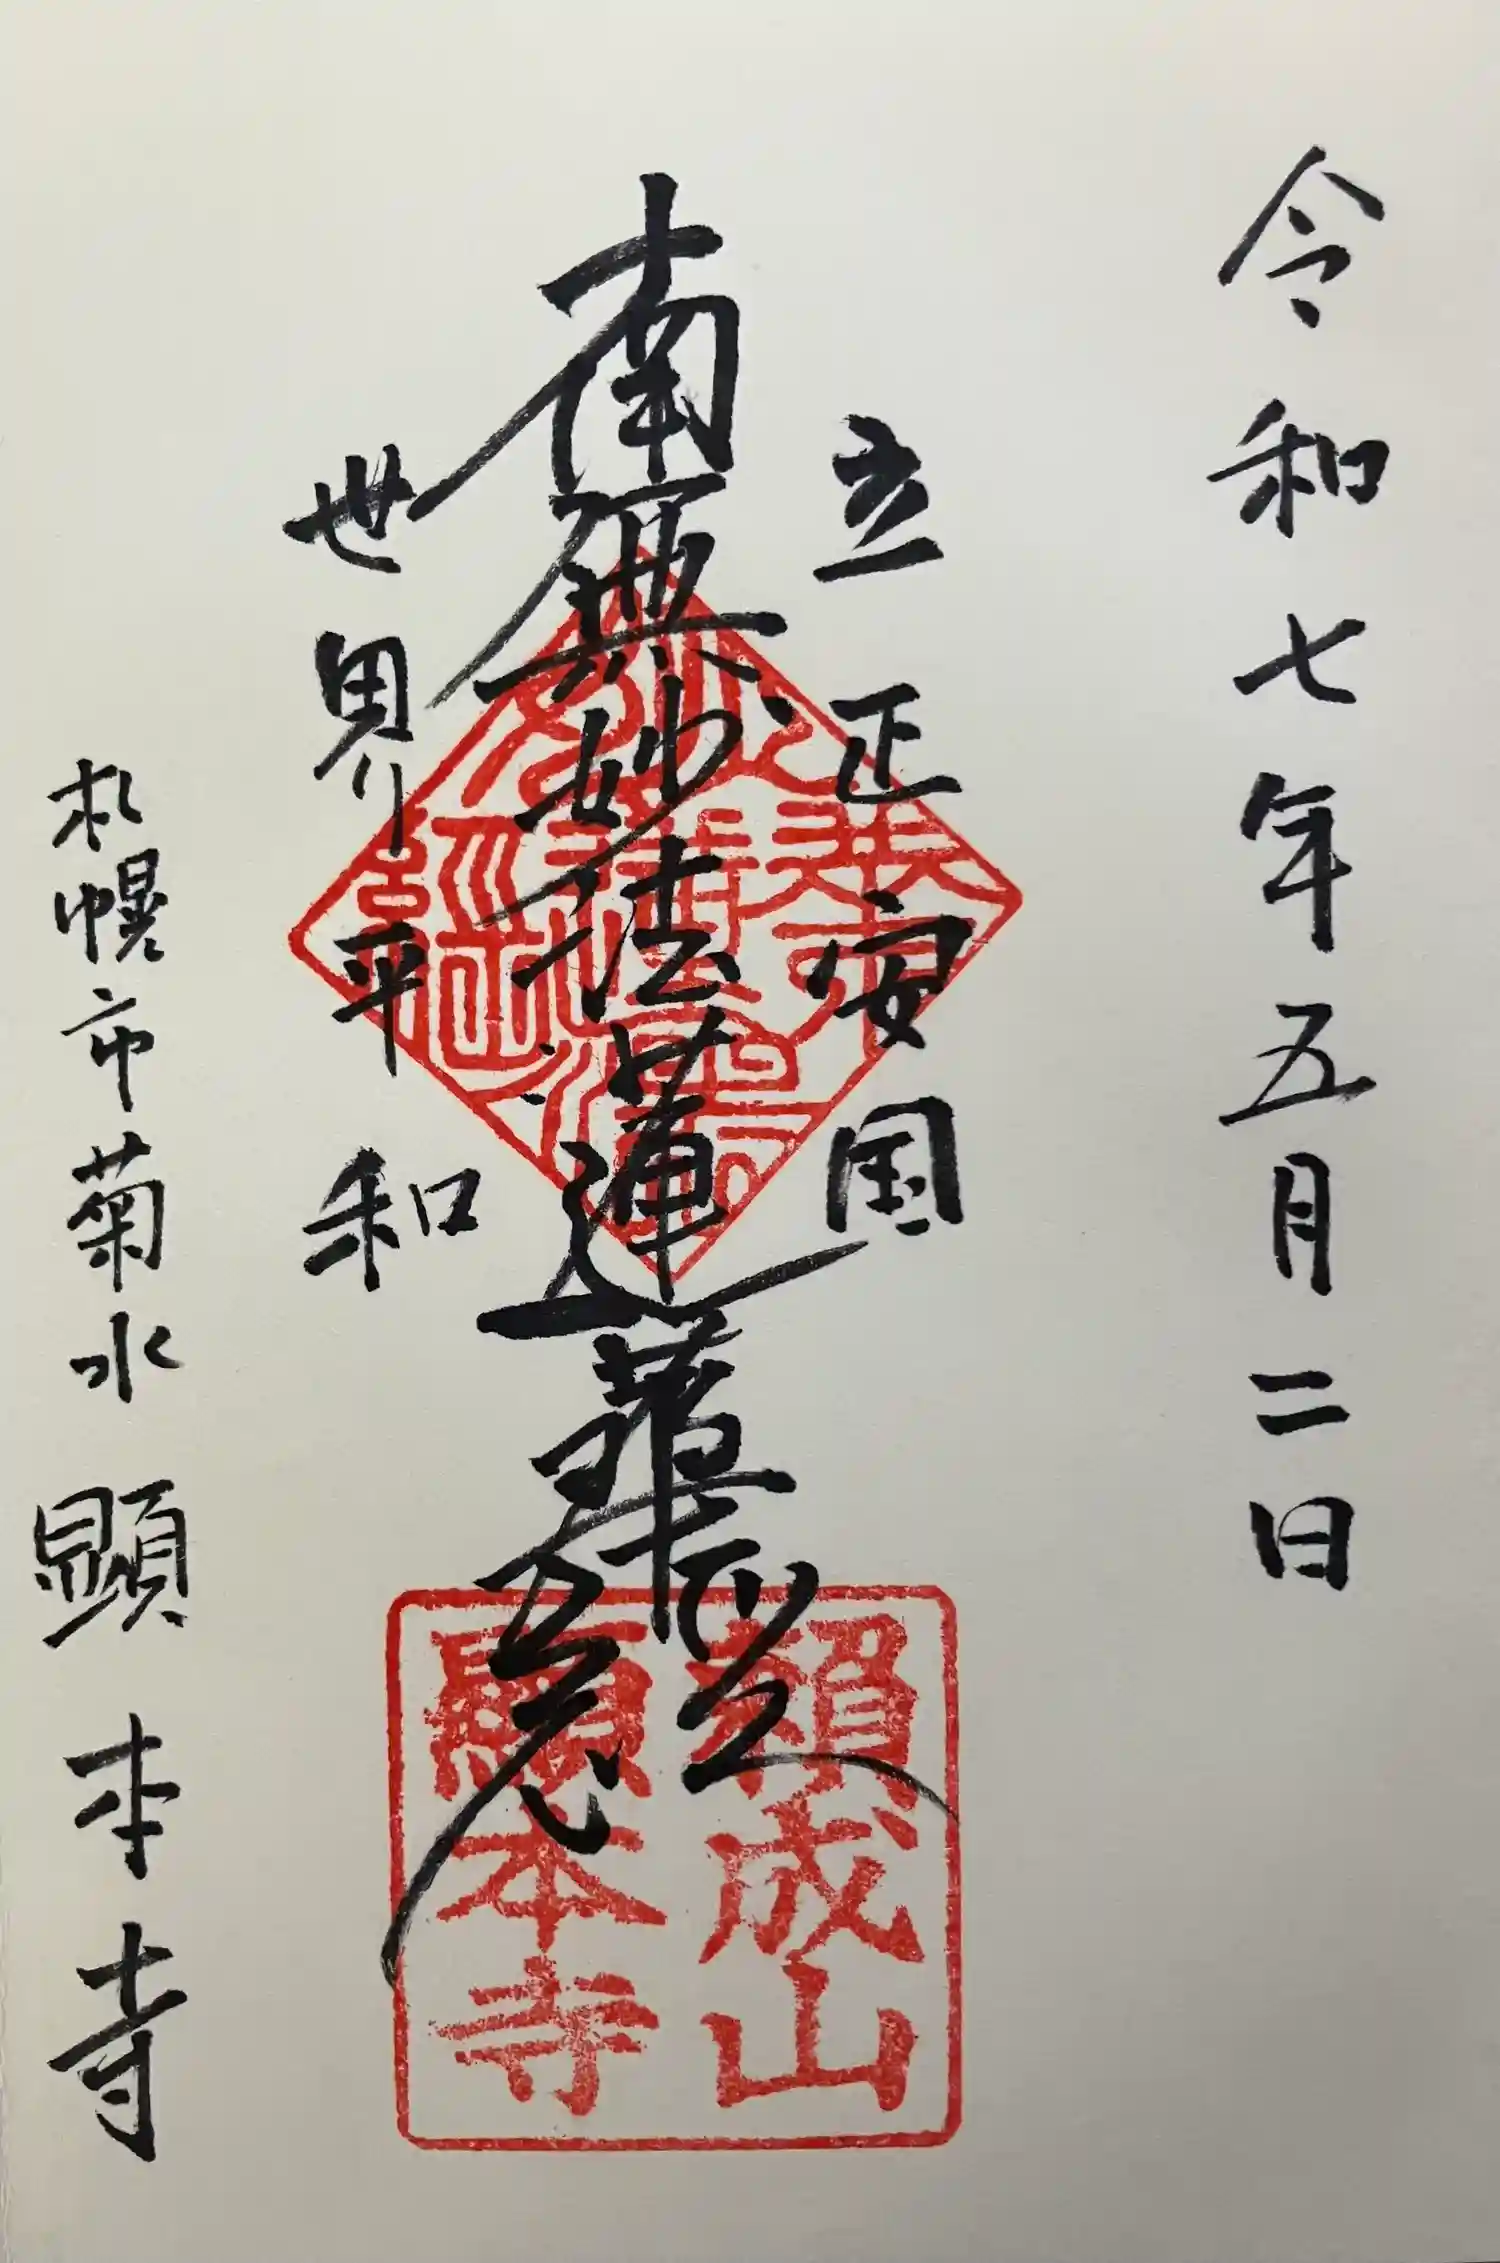 令和七年五月二日
立正安国
南無妙法蓮華経
世界平和
札幌市菊水 顕本寺
頼成山
顕本寺